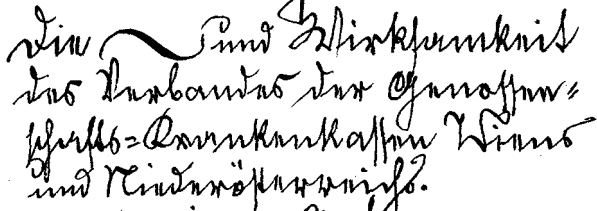 Die und Wirksamkeit
des Verbandes der Genossen-
schafts-Krankenkassen Wiens
und Niederösterreichs.